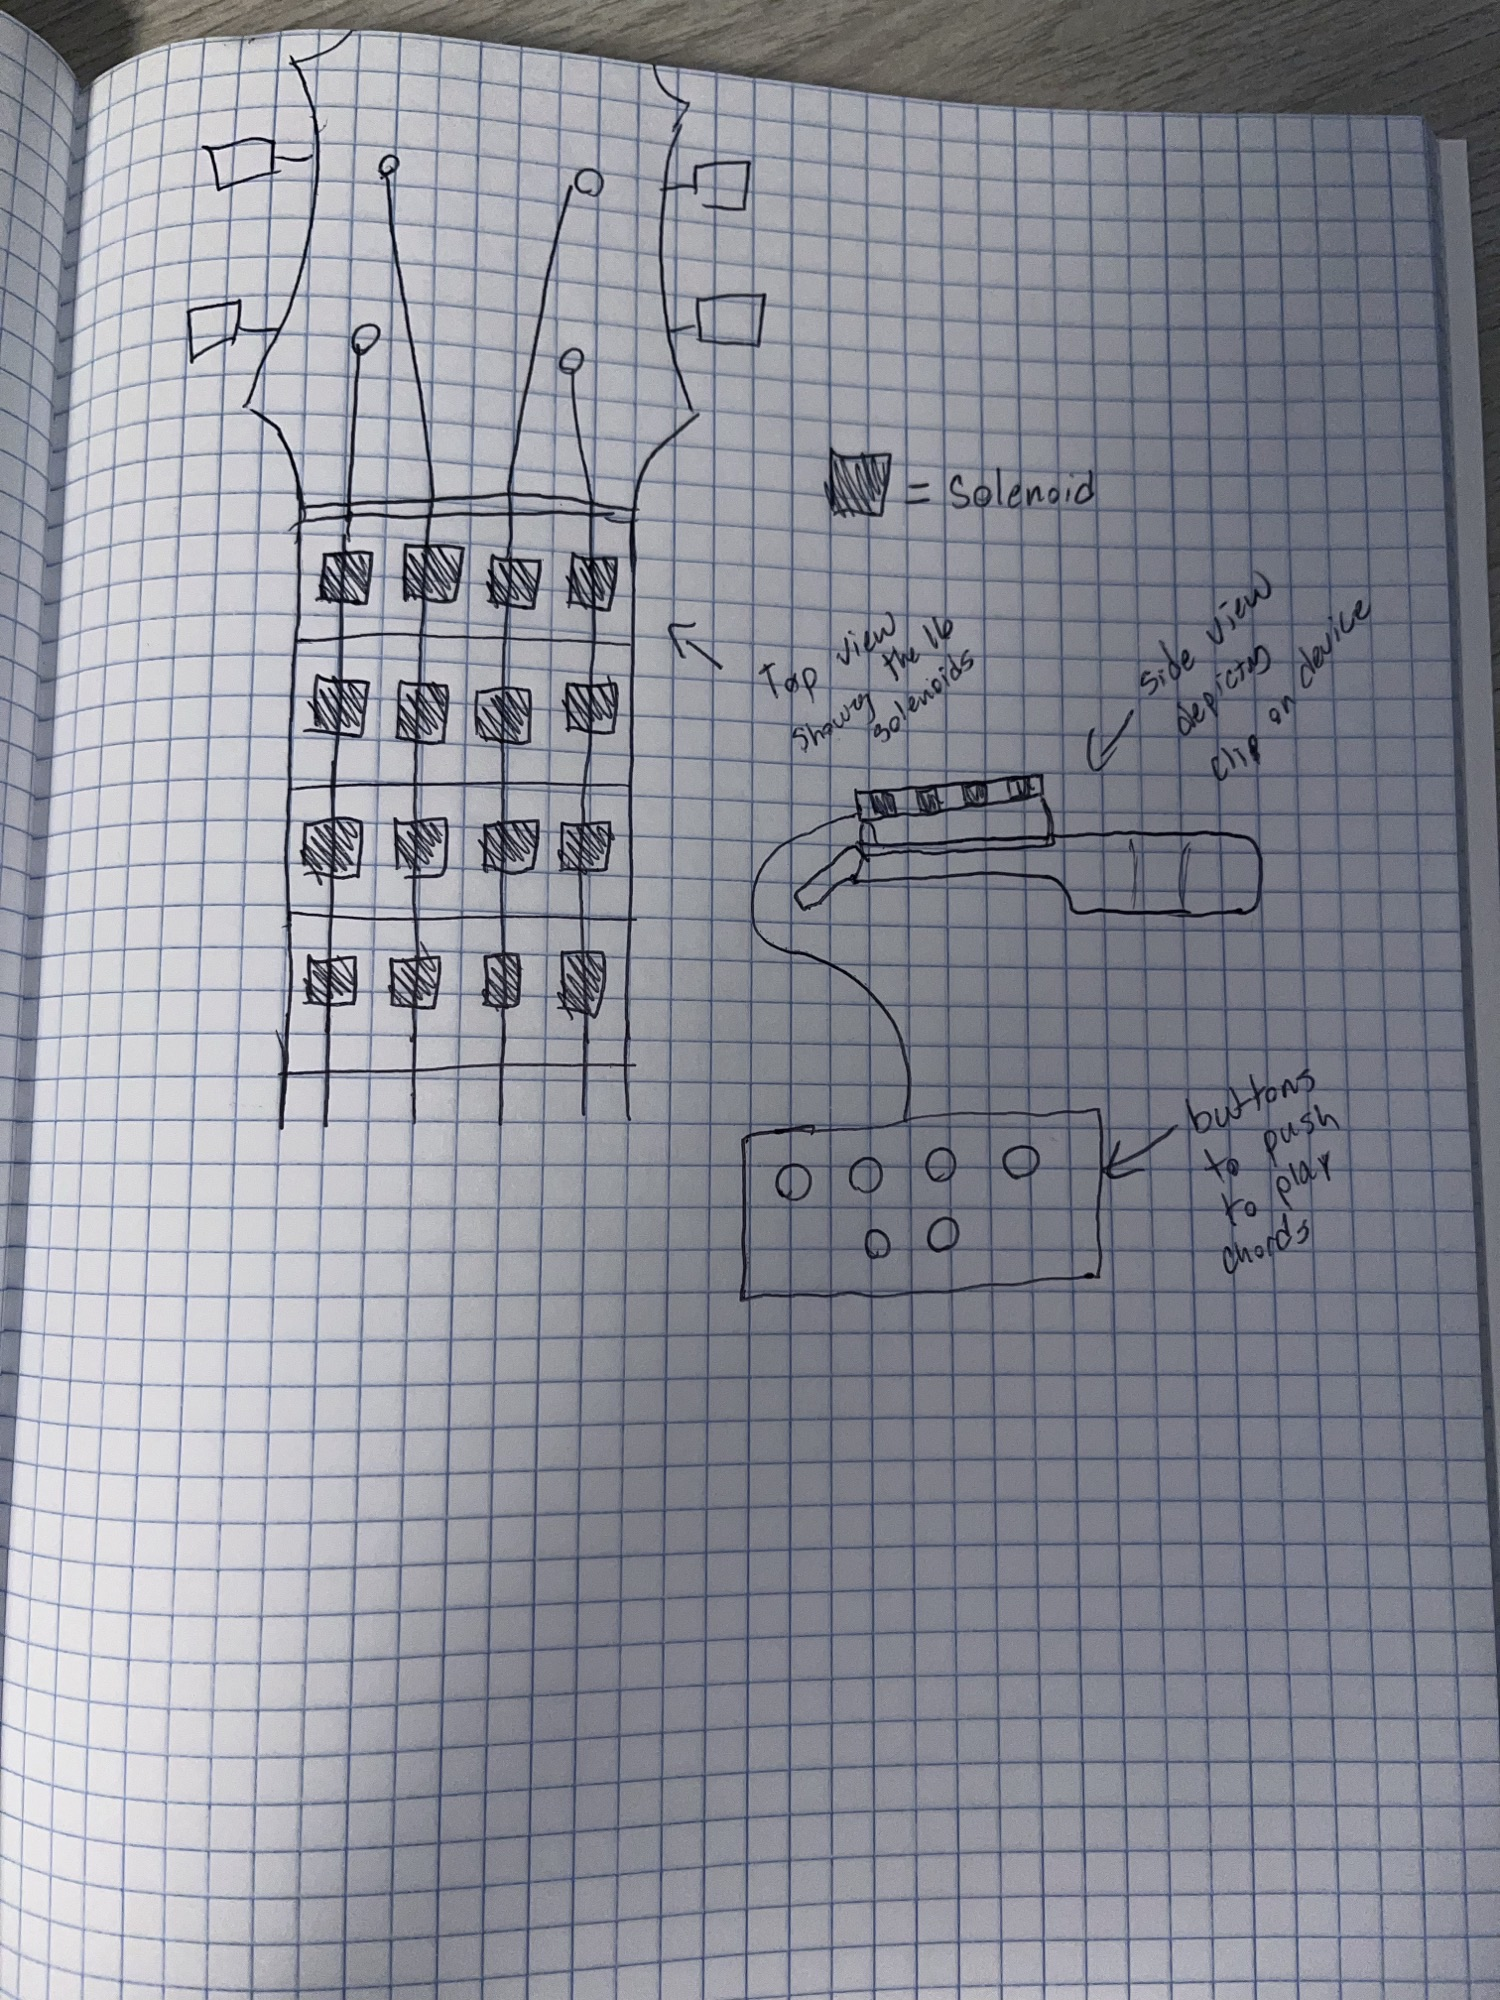 = Solenoid
Top view
showing the 16
solenoids
Side view
depicting
clip on device
buttons
to push
to play
chords